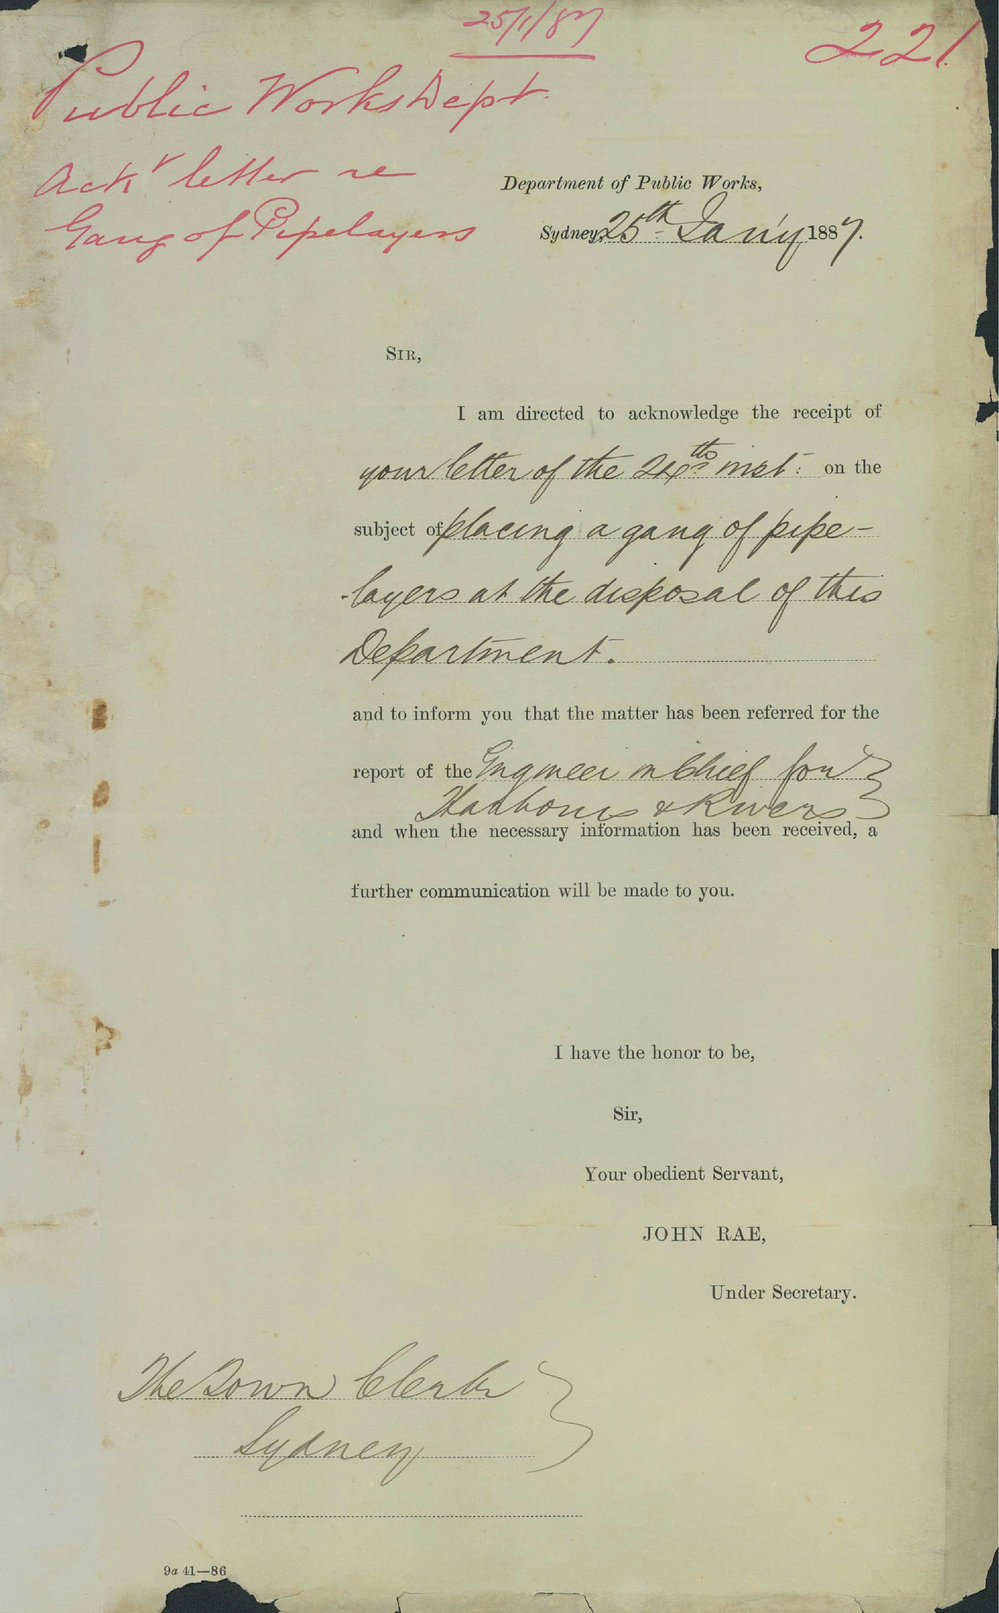 25/1/87
221
Public Works Dept
Ackr letter re
Gang of Pipelayers
Department of Public Works,
Sydney, 25th Jan'y 1887.
SIR,
I am directed to acknowledge the receipt of
your letter of the 24th inst. on the
subject of placing a gang of pipe-
-layers at the disposal of this
Department.
and to inform you that the matter has been referred for the
report of the Engineer in Chief for
Harbours & Rivers
and when the necessary information has been received, a
further communication will be made to you.
I have the honor to be,
Sir,
Your obedient Servant,
JOHN RAE,
Under Secretary.
The Town Clerk
Sydney
9a 41—86